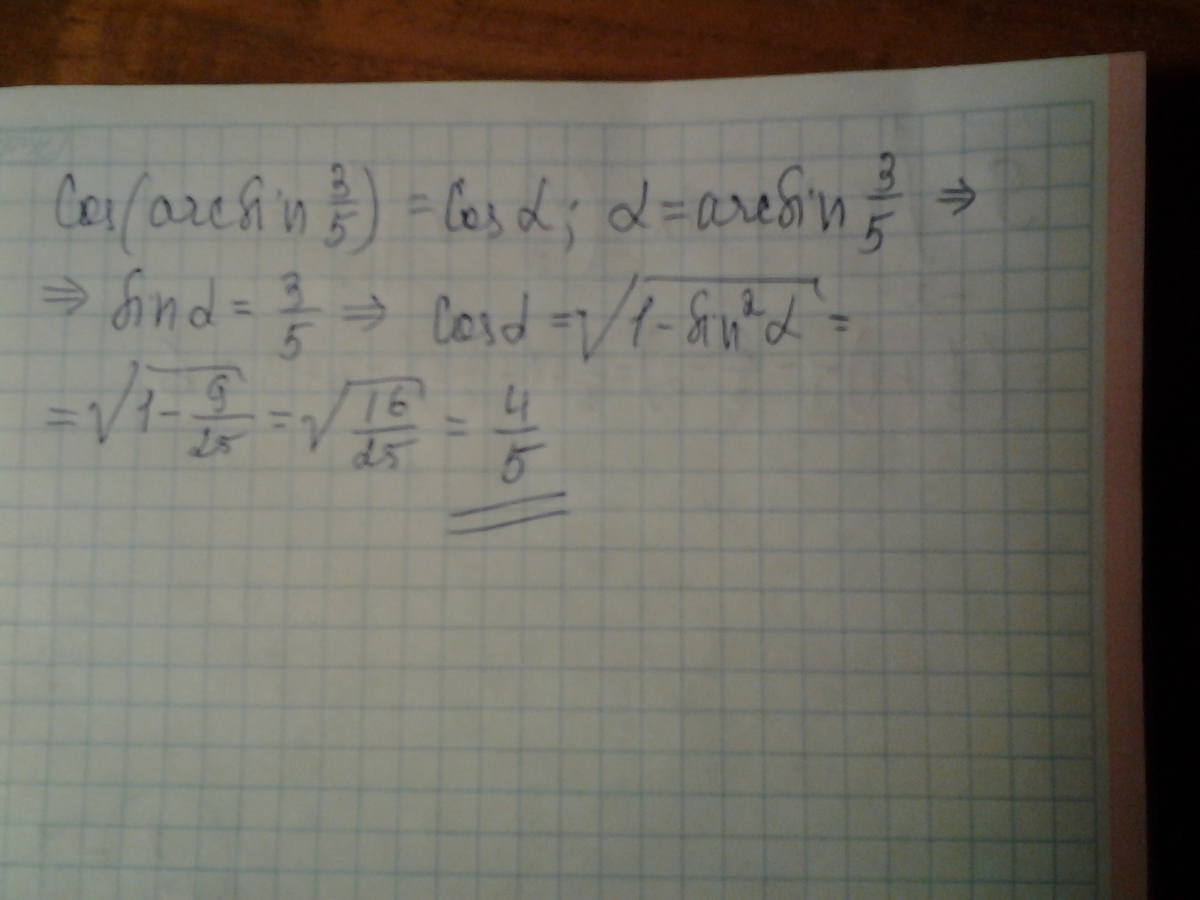 Cos(arcsin 3/5) = Cos α; α = arcsin 3/5 ⇒
⇒ sin α = 3/5 ⇒ Cos α = √(1 - sin²α) =
= √(1 - 9/25) = √(16/25) = 4/5